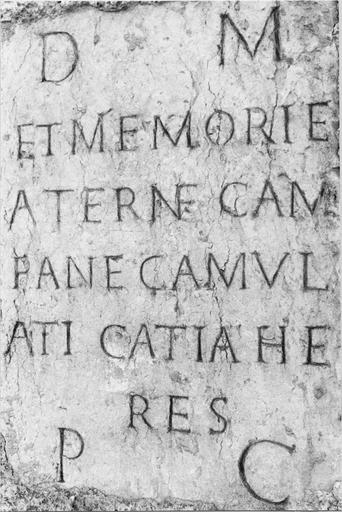 D M
ET MEMORIE
ATERNE CAM
PANE CAMVL
ATI CATIA HE
RES
P C